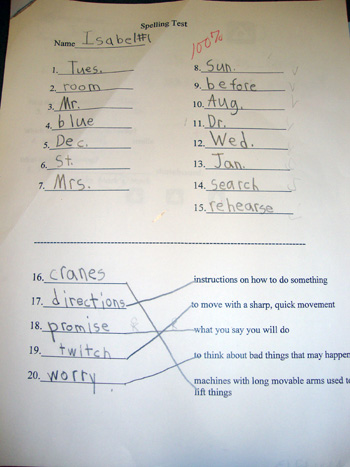 Spelling Test
Name Isabel#1
100%
1. Tues.
2. room
3. Mr.
4. blue
5. Dec.
6. St.
7. Mrs.
8. Sun.
9. before
10. Aug.
11. Dr.
12. Wed.
13. Jan.
14. search
15. rehearse
16. cranes
17. directions
18. promise
19. twitch
20. worry
instructions on how to do something
to move with a sharp, quick movement
what you say you will do
to think about bad things that may happen
machines with long movable arms used to
lift things